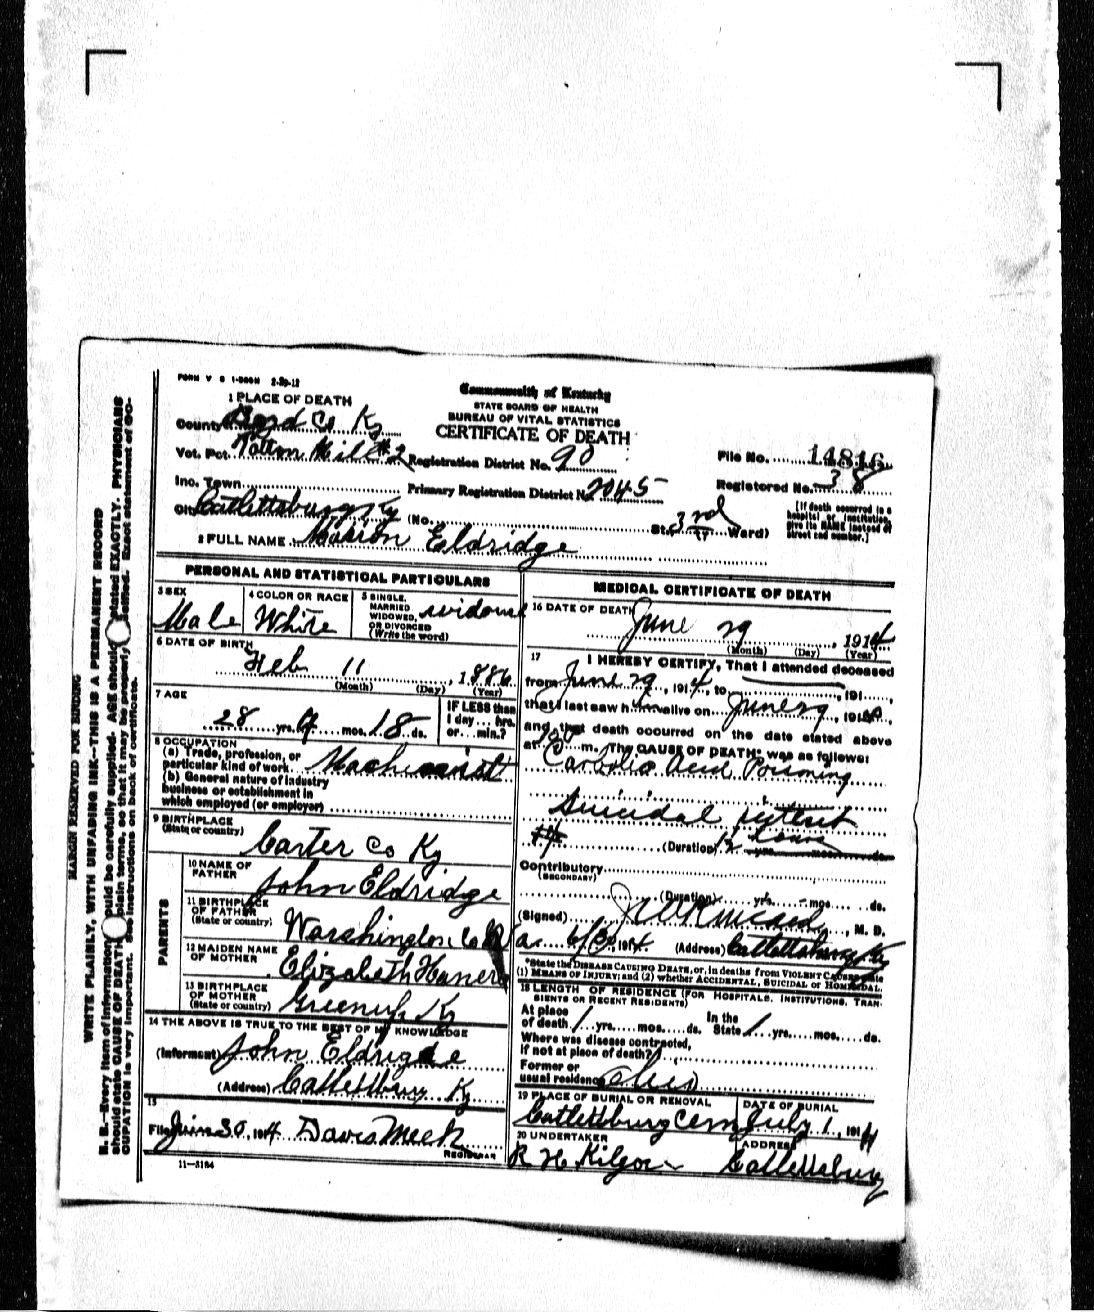 FORM V S 1-500M 2-29-12
Commonwealth of Kentucky
STATE BOARD OF HEALTH
BUREAU OF VITAL STATISTICS
CERTIFICATE OF DEATH
1 PLACE OF DEATH
County Boyd Co Ky
Vot. Pct. Mill #2 Registration District No. 90
File No. 14816
Inc. Town Primary Registration District No. 2045
Registered No. 38
City Catlettsburg Ky (No. St. 3rd Ward)
[If death occurred in a hospital or institution, give its NAME instead of street and number.]
2 FULL NAME Marion Eldridge
PERSONAL AND STATISTICAL PARTICULARS
3 SEX Male
4 COLOR OR RACE White
5 SINGLE, MARRIED, WIDOWED, OR DIVORCED (Write the word)
6 DATE OF BIRTH
Feb 11, 1886
(Month) (Day) (Year)
7 AGE
28 yrs. 4 mos. 18 ds.
IF LESS than 1 day ... hrs. or ... min.?
8 OCCUPATION
(a) Trade, profession, or
particular kind of work Machinist
(b) General nature of industry
business or establishment in
which employed (or employer)
9 BIRTHPLACE
(State or country) Carter Co Ky
PARENTS
10 NAME OF FATHER John Eldridge
11 BIRTHPLACE OF FATHER (State or country) Warshington Co
12 MAIDEN NAME OF MOTHER Elizabeth
13 BIRTHPLACE OF MOTHER (State or country) Greenup Ky
14 THE ABOVE IS TRUE TO THE BEST OF MY KNOWLEDGE
(Informant) John Eldrigde
(Address) Catlettsburg Ky
15
Filed Jun 30, 1914 Davis Meek
REGISTRAR
11-3184
MEDICAL CERTIFICATE OF DEATH
16 DATE OF DEATH
June 29, 1914
(Month) (Day) (Year)
17 I HEREBY CERTIFY, That I attended deceased
from June 29, 1914, to , 191 ,
that I last saw him alive on June 29, 191 ,
and that death occurred on the date stated above
at m. The CAUSE OF DEATH* was as follows:
Carbolic Acid Poisining
Suicidal intent
(Duration) 12 yrs. mos. ds.
Contributory
(SECONDARY)
(Duration) yrs. mos. ds.
(Signed) , M. D.
6/30, 1914 (Address) Catlettsburg Ky
*State the DISEASE CAUSING DEATH, or, in deaths from VIOLENT CAUSES, state
(1) MEANS OF INJURY; and (2) whether ACCIDENTAL, SUICIDAL or HOMICIDAL.
18 LENGTH OF RESIDENCE (FOR HOSPITALS, INSTITUTIONS, TRANSIENTS OR RECENT RESIDENTS)
At place of death 1 yrs. mos. ds. In the State 1 yrs. mos. ds.
Where was disease contracted,
if not at place of death?
Former or
usual residence Ohio
19 PLACE OF BURIAL OR REMOVAL
Catlettsburg Cem
DATE OF BURIAL
July 1, 1914
20 UNDERTAKER
R H Kilgore
ADDRESS
Catlettsburg
MARGIN RESERVED FOR BINDING
WRITE PLAINLY, WITH UNFADING INK—THIS IS A PERMANENT RECORD
N. B.—Every item of information should be carefully supplied. AGE should be stated EXACTLY. PHYSICIANS
should state CAUSE OF DEATH in plain terms, so that it may be properly classified. Exact statement of OC-
CUPATION is very important. See instructions on back of certificate.